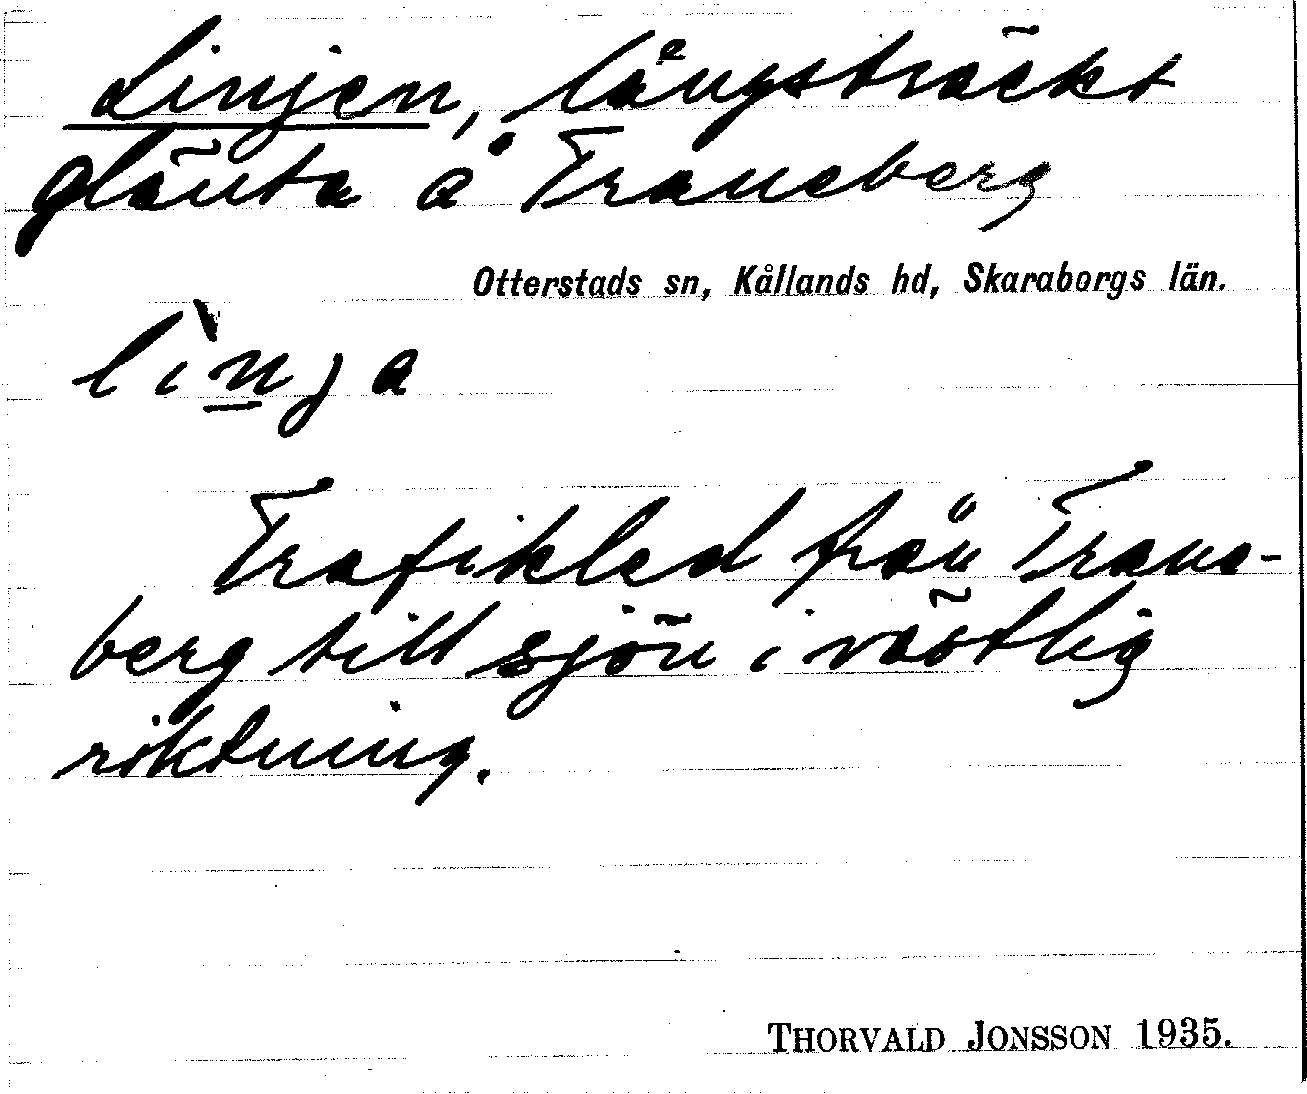 Linjen, långsträckt
glänta å Traneberg
Otterstads sn, Kållands hd, Skaraborgs län.
lìnja
Trafikled från Trane-
berg till sjön i västlig
riktning.
THORVALD JONSSON 1935.